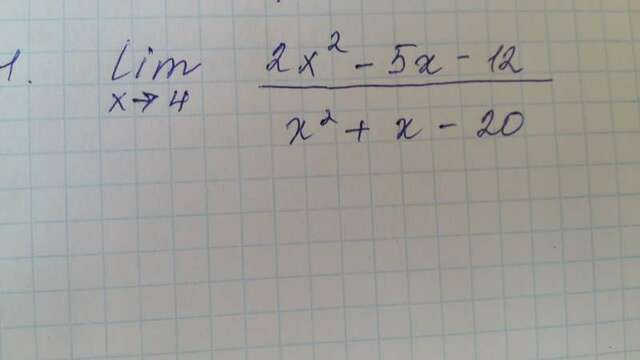 1. lim x→4 (2x² - 5x - 12) / (x² + x - 20)